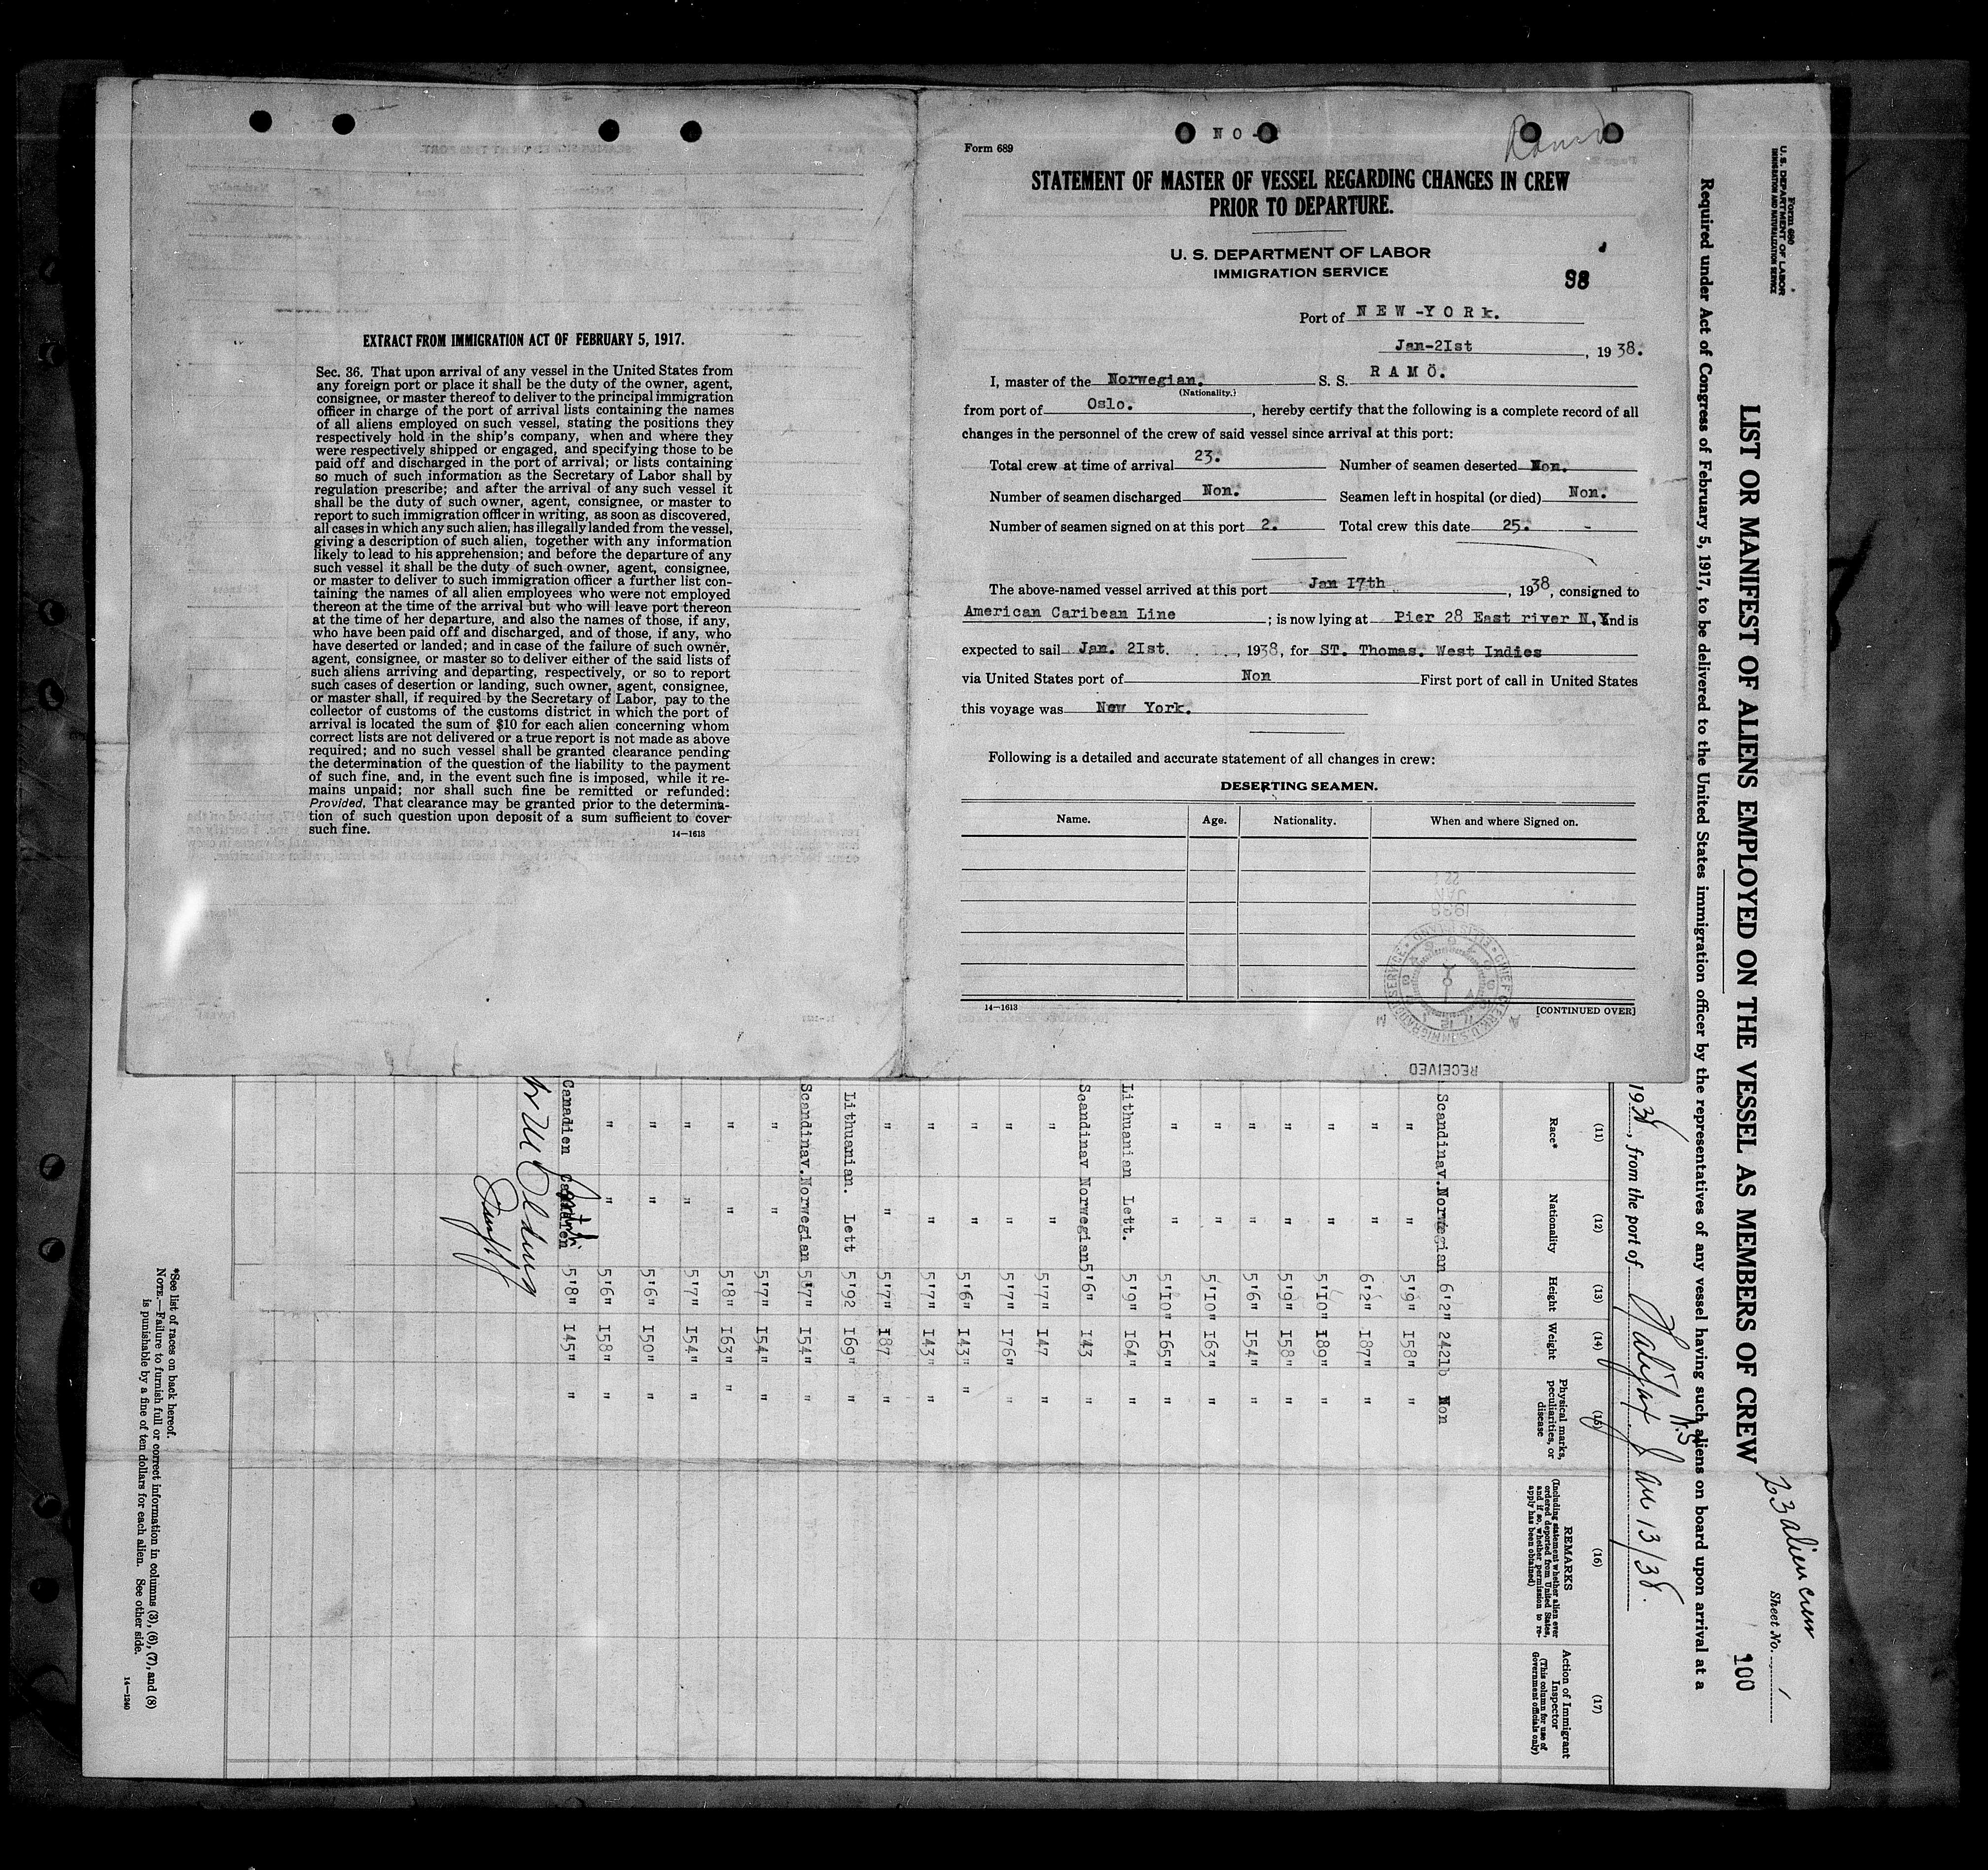 EXTRACT FROM IMMIGRATION ACT OF FEBRUARY 5, 1917.
Sec. 36. That upon arrival of any vessel in the United States from
any foreign port or place it shall be the duty of the owner, agent,
consignee, or master thereof to deliver to the principal immigration
officer in charge of the port of arrival lists containing the names
of all aliens employed on such vessel, stating the positions they
respectively hold in the ship's company, when and where they
were respectively shipped or engaged, and specifying those to be
paid off and discharged in the port of arrival; or lists containing
so much of such information as the Secretary of Labor shall by
regulation prescribe; and after the arrival of any such vessel it
shall be the duty of such owner, agent, consignee, or master to
report to such immigration officer in writing, as soon as discovered,
all cases in which any such alien has illegally landed from the vessel,
giving a description of such alien, together with any information
likely to lead to his apprehension; and before the departure of any
such vessel it shall be the duty of such owner, agent, consignee,
or master to deliver to such immigration officer a further list con-
taining the names of all alien employees who were not employed
thereon at the time of the arrival but who will leave port thereon
at the time of her departure, and also the names of those, if any,
who have been paid off and discharged, and of those, if any, who
have deserted or landed; and in case of the failure of such owner,
agent, consignee, or master so to deliver either of the said lists of
such aliens arriving and departing, respectively, or so to report
such cases of desertion or landing, such owner, agent, consignee,
or master shall, if required by the Secretary of Labor, pay to the
collector of customs of the customs district in which the port of
arrival is located the sum of $10 for each alien concerning whom
correct lists are not delivered or a true report is not made as above
required; and no such vessel shall be granted clearance pending
the determination of the question of the liability to the payment
of such fine, and, in the event such fine is imposed, while it re-
mains unpaid; nor shall such fine be remitted or refunded:
Provided, That clearance may be granted prior to the determina-
tion of such question upon deposit of a sum sufficient to cover
such fine.
14—1613
N O -
Form 689
STATEMENT OF MASTER OF VESSEL REGARDING CHANGES IN CREW
PRIOR TO DEPARTURE.
U. S. DEPARTMENT OF LABOR
IMMIGRATION SERVICE
98
Port of N E W -Y O R k.
Jan-2Ist, 1938.
I, master of the Norwegian. S. S. R A M Ö.
(Nationality.)
from port of Oslo., hereby certify that the following is a complete record of all
changes in the personnel of the crew of said vessel since arrival at this port:
Total crew at time of arrival 23. Number of seamen deserted Non.
Number of seamen discharged Non. Seamen left in hospital (or died) Non.
Number of seamen signed on at this port 2. Total crew this date 25. -
The above-named vessel arrived at this port Jan I7th, 1938, consigned to
American Caribean Line; is now lying at Pier 28 East river N,Y and is
expected to sail Jan. 2Ist., 1938, for ST. Thomas. West Indies
via United States port of Non First port of call in United States
this voyage was New York.
Following is a detailed and accurate statement of all changes in crew:
DESERTING SEAMEN.
Name. Age. Nationality. When and where Signed on.
1938
JAN
22
CHIEF CLERK U.S. IMMIGRATION SERVICE • ELLIS ISLAND •
RECEIVED
14—1613
[CONTINUED OVER]
Form 680
U. S. DEPARTMENT OF LABOR
IMMIGRATION AND NATURALIZATION SERVICE
23 alien crew
Sheet No. 1
LIST OR MANIFEST OF ALIENS EMPLOYED ON THE VESSEL AS MEMBERS OF CREW
100
Required under Act of Congress of February 5, 1917, to be delivered to the United States immigration officer by the representatives of any vessel having such aliens on board upon arrival at a
1938, from the port of Halifax N.S. Jan 13/38.
(11) (12) (13) (14) (15) (16) (17)
Race* Nationality Height Weight Physical marks, peculiarities, or disease REMARKS (Including statement whether alien ever ordered deported from United States, and if so, whether permission to re-apply has been obtained) Action of Immigrant Inspector (This column for use of Government officials only)
Scandinav. Norwegian 6'2" 242lb Non
" " 5'9" I58" "
" " 6'2" I87" "
" " 5'I0" I89" "
" " 5'9" I58" "
" " 5'6" I54" "
" " 5'I0" I63" "
" " 5'I0" I65" "
Lithuanian Lett. 5'9" I64" "
Scandinav Norwegian 5'6" I43 "
" " 5'7" I47 "
" " 5'7" I76" "
" " 5'6" I43" "
" " 5'7" I43" "
" " 5'7" I87 "
Lithuanian. Lett 5'92 I69" "
Scandinav. Norwegian 5'7" I54" "
" " 5'7" I54" "
" " 5'8" I63" "
" " 5'7" I54" "
" " 5'6" I50" "
" " 5'6" I58" "
Canadien 5'8" I45" "
*See list of races on back hereof.
NOTE.—Failure to furnish full or correct information in columns (3), (6), (7), and (8)
is punishable by a fine of ten dollars for each alien. See other side.
14—1240